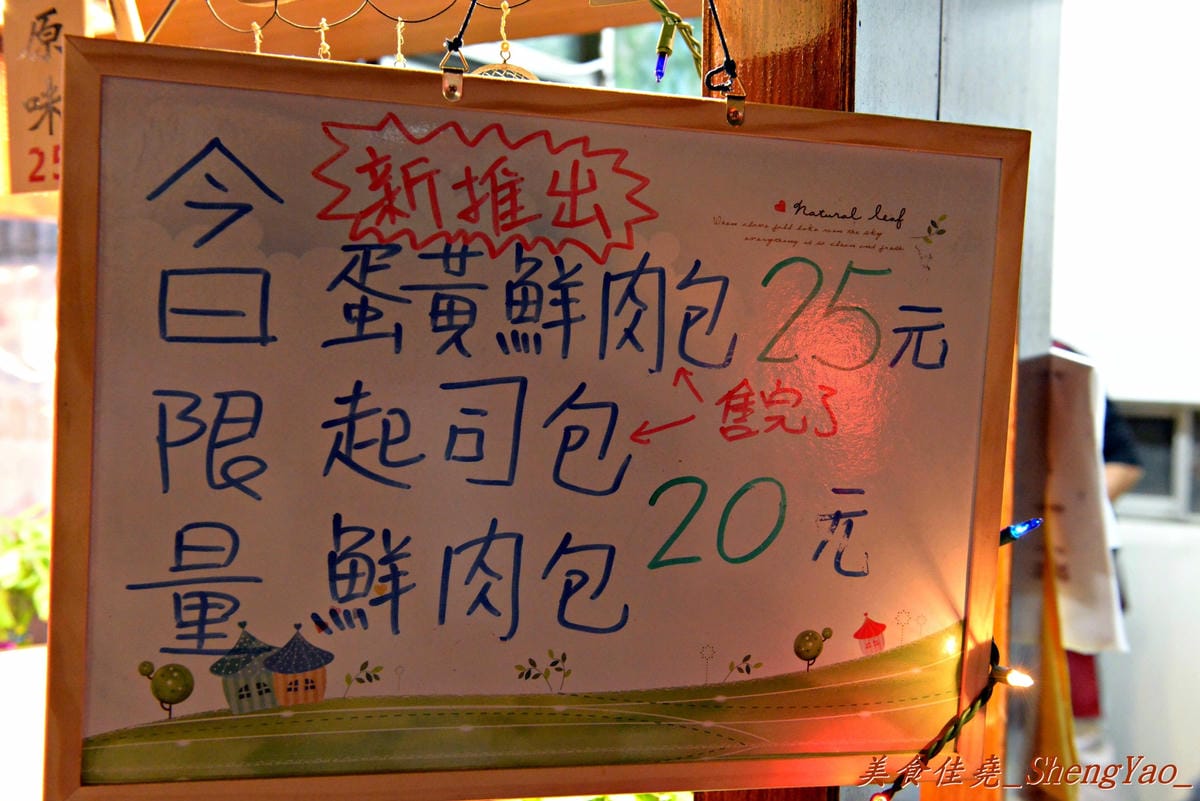 原味
25
今日限量
新推出
蛋黃鮮肉包 25元
起司包
售完了
鮮肉包 20元
Natural leaf
everything is so clean and fresh
美食佳堯_ShengYao_